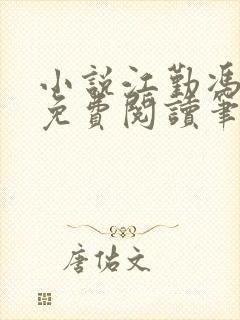 小說江勤馮
免費閱讀筆
唐佑文